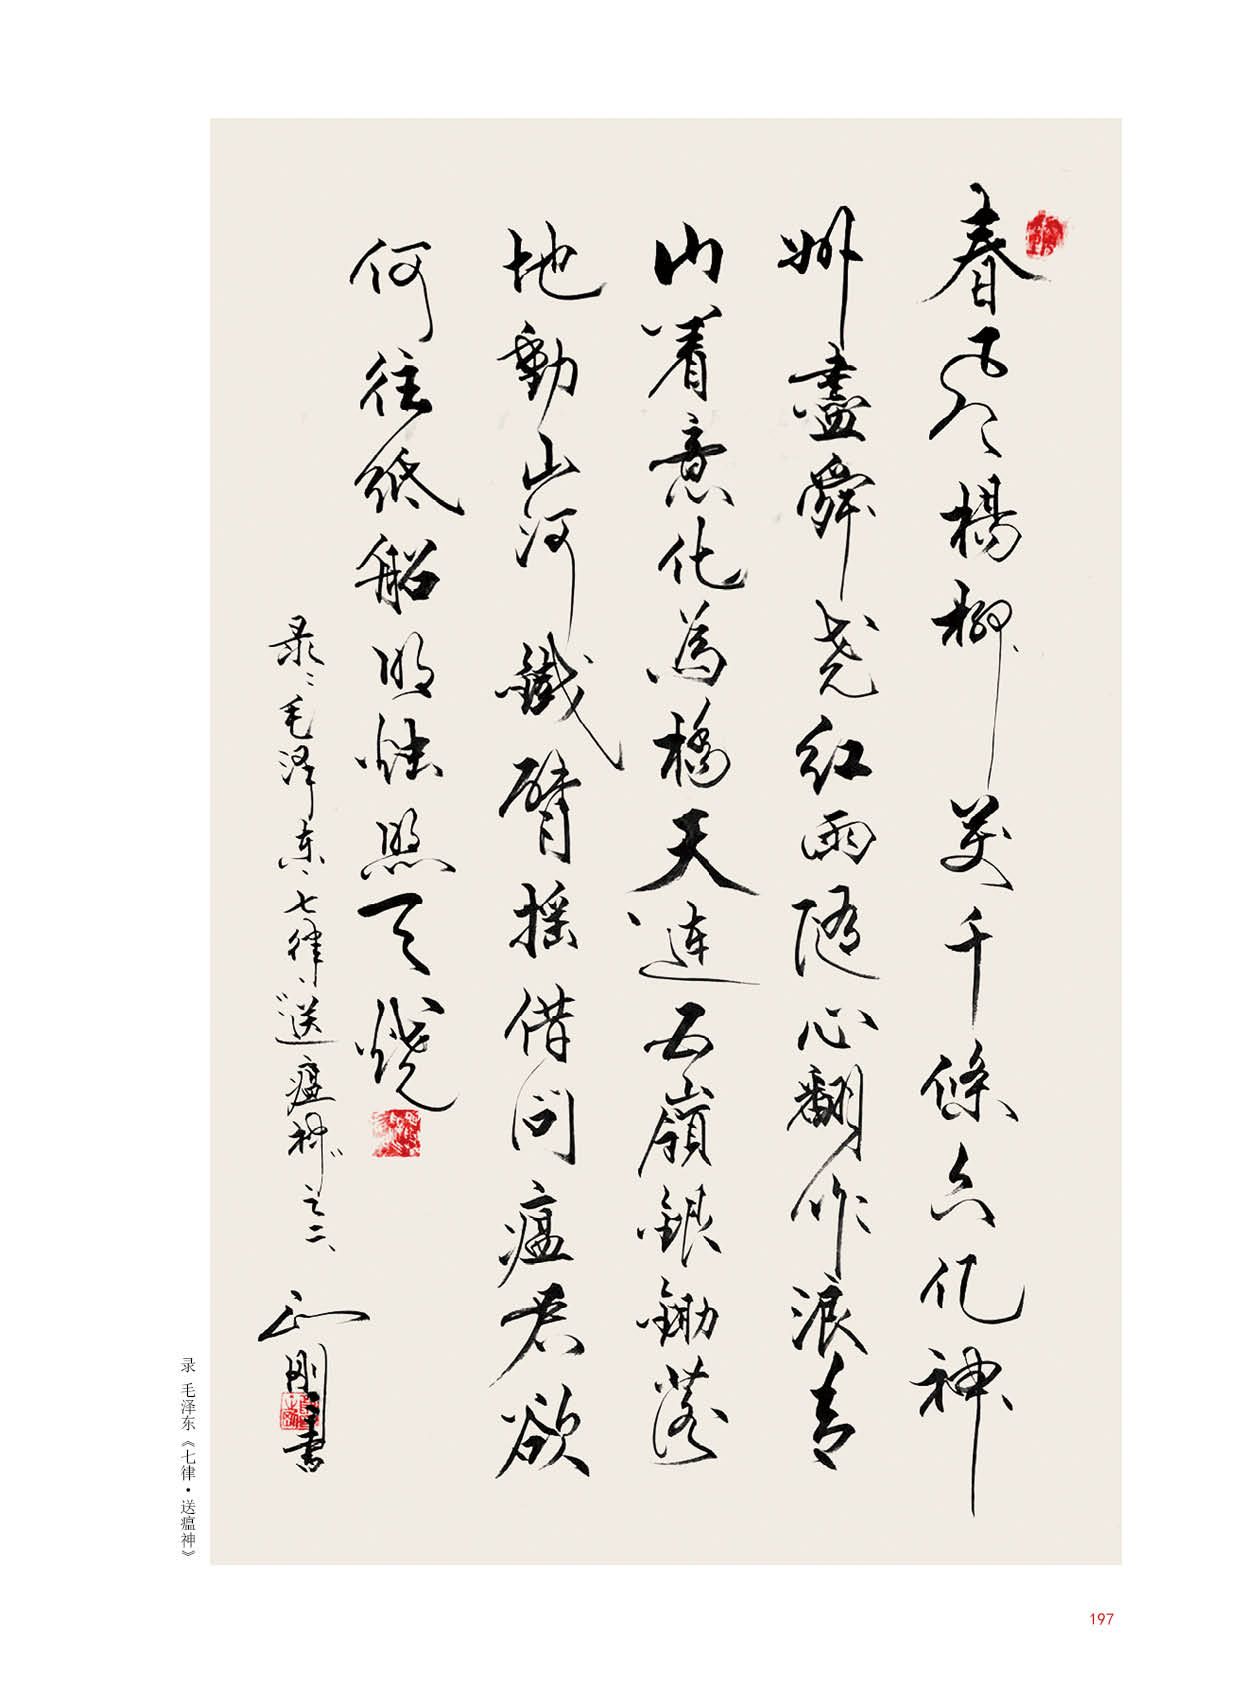 春风楊柳萬千條六亿神
州盡舜尧红雨隨心翻作浪青
山着意化為橋天連五嶺銀鋤落
地動山河鐵臂摇借问瘟君欲
何往纸船明烛照天烧
录毛泽东、七律、“送瘟神”之二、
刚書
录 毛泽东《七律·送瘟神》
197